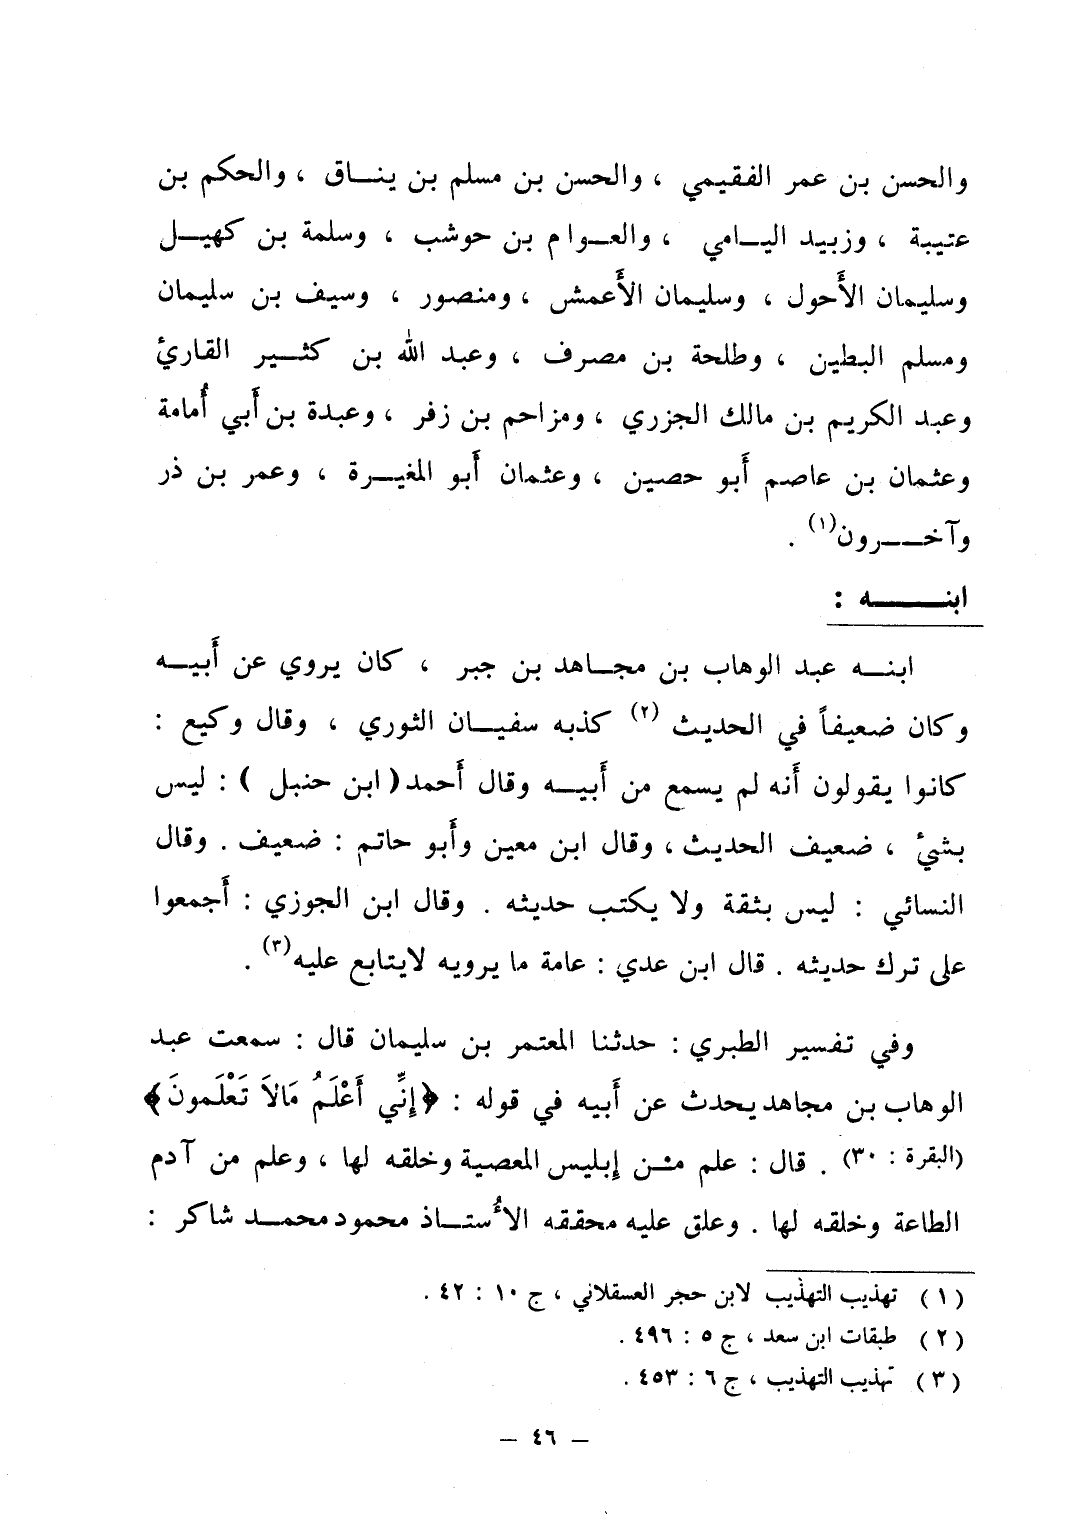 والحسن بن عمر الفقيمي ، والحسن بن مسلم بن يناق ، والحكم بن
عتيبة ، وزبيد اليامي ، والعوام بن حوشب ، وسلمة بن كهيل
وسليمان الأحول ، وسليمان الأعمش ، ومنصور ، وسيف بن سليمان
ومسلم البطين ، وطلحة بن مصرف ، وعبد الله بن كثير القارئ
وعبد الكريم بن مالك الجزري ، ومزاحم بن زفر ، وعبدة بن أبي أُمامة
وعثمان بن عاصم أبو حصين ، وعثمان أبو المغيرة ، وعمر بن ذر
وآخرون(١) .
ابنه :
ابنه عبد الوهاب بن مجاهد بن جبر ، كان يروي عن أبيه
وكان ضعيفاً في الحديث (٢) كذبه سفيان الثوري ، وقال وكيع :
كانوا يقولون أنه لم يسمع من أبيه وقال أحمد ( ابن حنبل ) : ليس
بشيء ، ضعيف الحديث ، وقال ابن معين وأبو حاتم : ضعيف . وقال
النسائي : ليس بثقة ولا يكتب حديثه . وقال ابن الجوزي : أجمعوا
على ترك حديثه . قال ابن عدي : عامة ما يرويه لايتابع عليه(٣) .
وفي تفسير الطبري : حدثنا المعتمر بن سليمان قال : سمعت عبد
الوهاب بن مجاهد يحدث عن أبيه في قوله : ﴿إِنِّي أَعْلَمُ مَالاَ تَعْلَمونَ﴾
(البقرة : ٣٠) . قال : علم من إبليس المعصية وخلقه لها ، وعلم من آدم
الطاعة وخلقه لها . وعلق عليه محققه الأُستاذ محمود محمد شاكر :
(١) تهذيب التهذيب لابن حجر العسقلاني ، ج ١٠ : ٤٢ .
(٢) طبقات ابن سعد ، ج ٥ : ٤٩٦ .
(٣) تهذيب التهذيب ، ج ٦ : ٤٥٣ .
— ٤٦ —